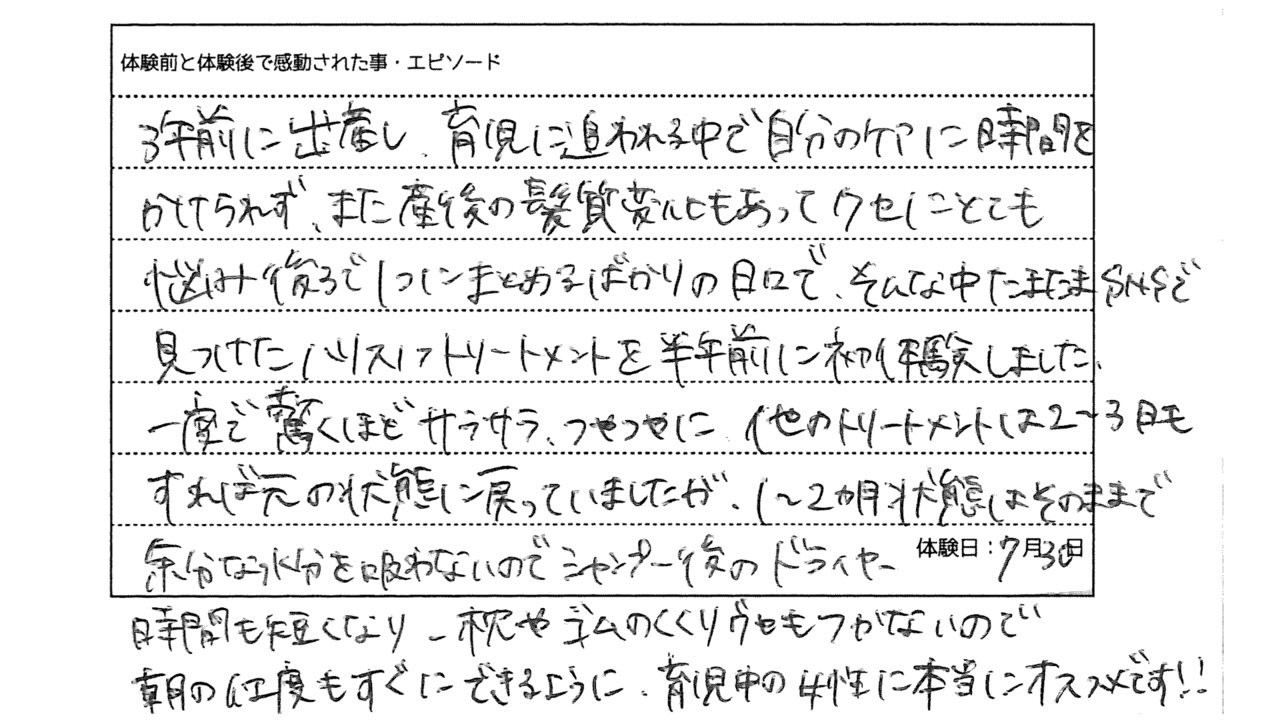 体験前と体験後で感動された事・エピソード
3年前に出産し、育児に追われる中で自分のケアに時間を
かけられず、また産後の髪質変化もあってクセにとても
悩み後ろで1つにまとめるばかりの日々で、そんな中たまたまSNSで
見つけたハリスパトリートメントを半年前に初体験しました。
一度で驚くほどサラサラ、つやつやに。他のトリートメントは2〜3日も
すれば元の状態に戻っていましたが、1〜2カ月状態はそのままで
余分な水分を吸わないのでシャンプー後のドライヤー
体験日:7月30日
時間も短くなり、枕やゴムのくくりグセもつかないので
朝の仕度もすぐにできるように、育児中の女性に本当にオススメです!!